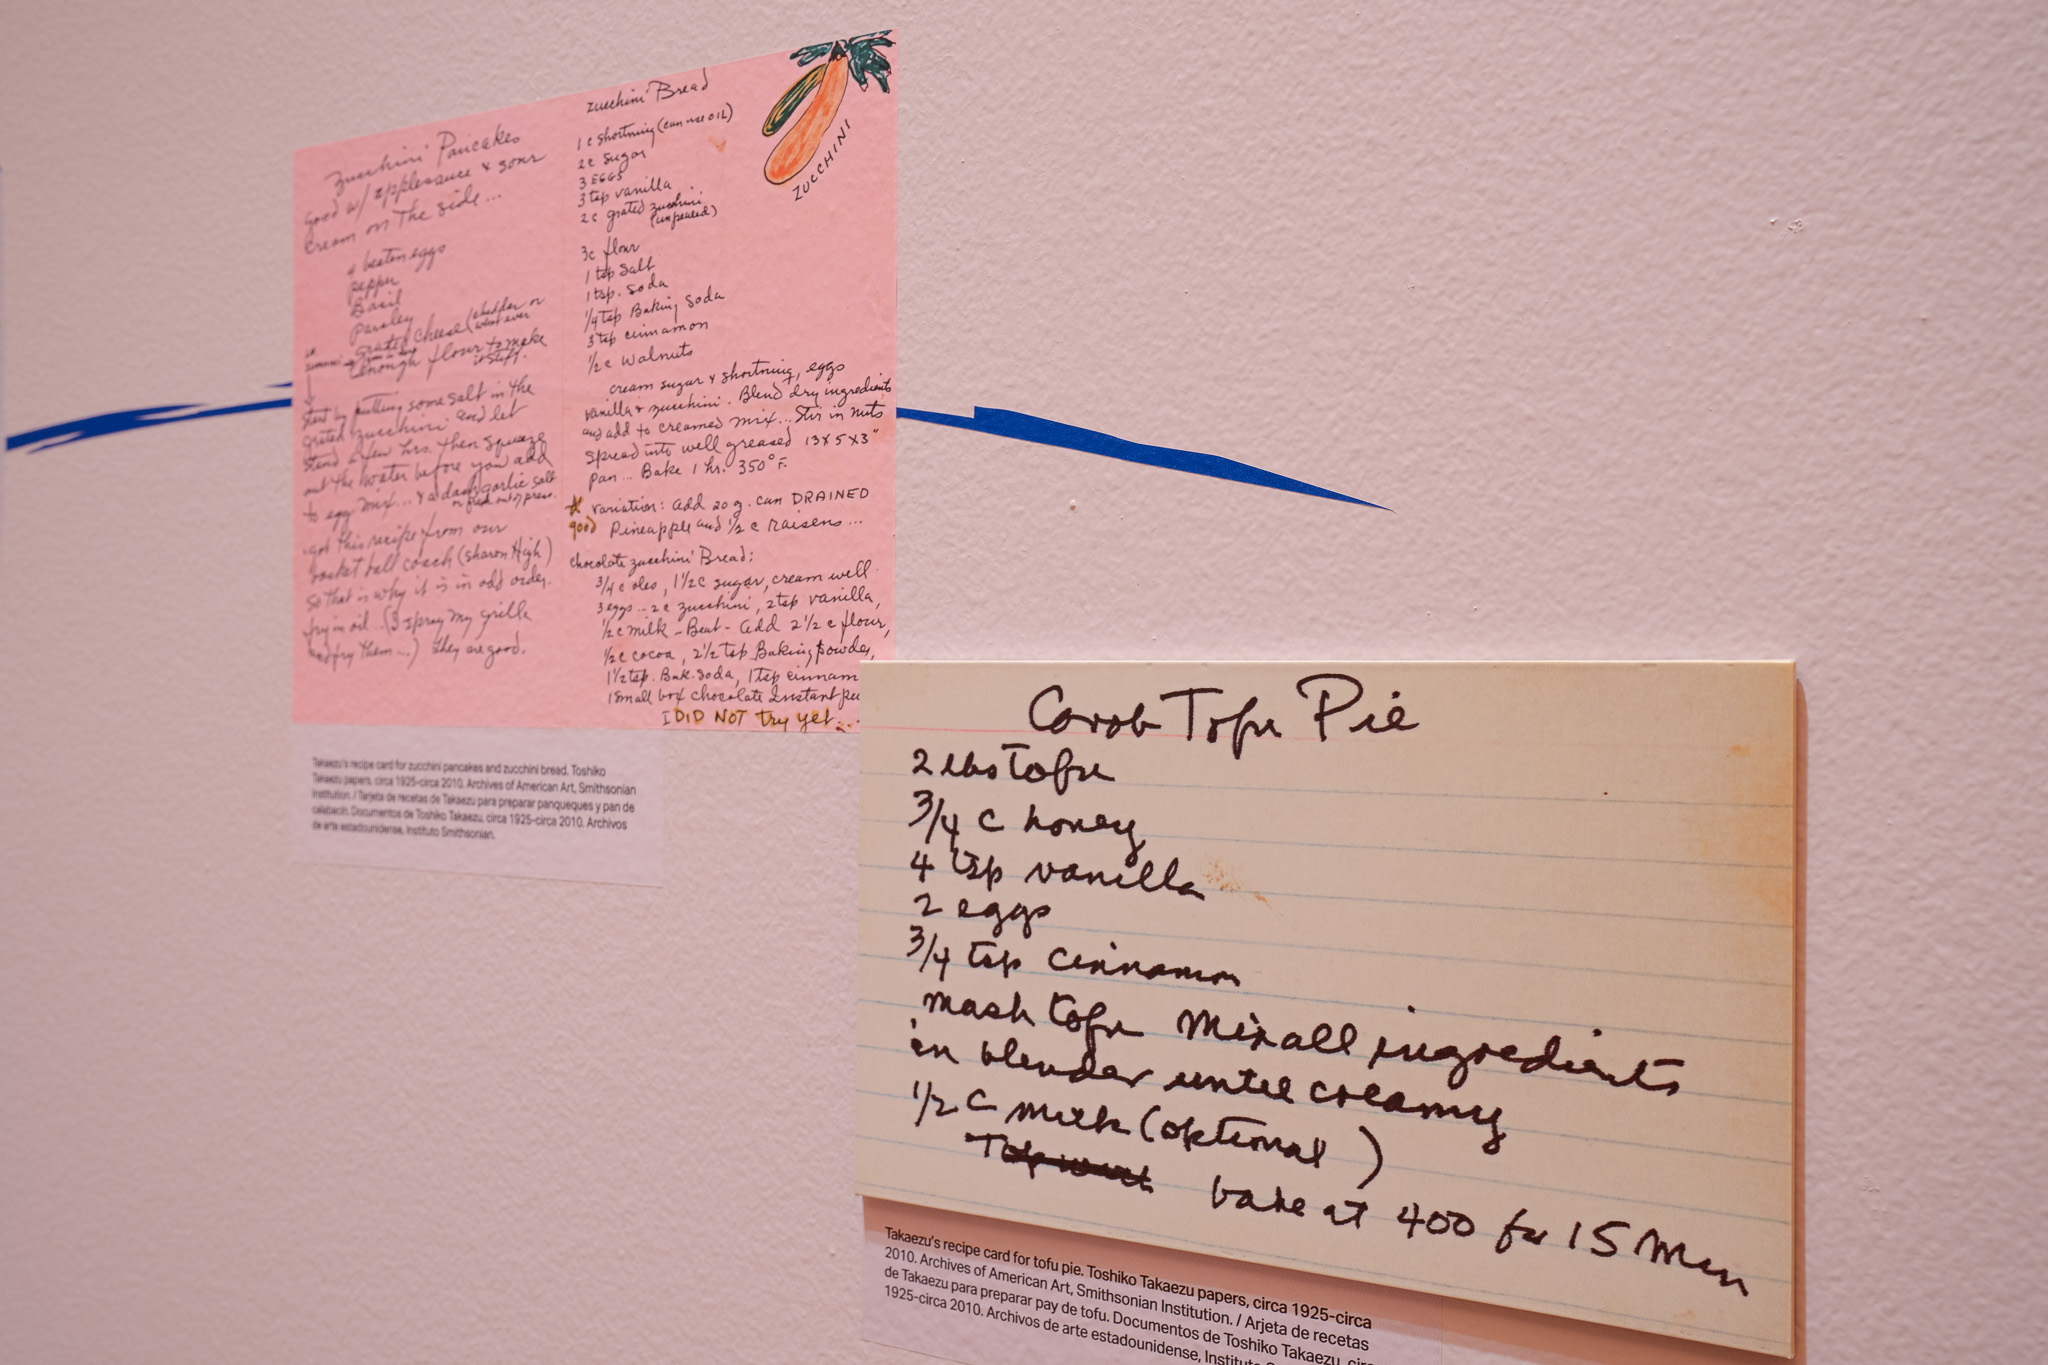 Zucchini Pancakes
good w/ applesauce & sour
cream on The side...
4 beaten eggs
pepper
Basil
Parsley
grated cheese (chedder or
what ever
enough flour to make
it stiff.
Start by putting some salt in the
grated zucchini and let
stand a few hrs. then squeeze
out the water before you add
to egg mix... & a dash garlic salt
got this recipe from our
basket ball coach (sharon High)
so that is why it is in odd order.
fry in oil. (I spray my grille
and fry them...) they are good.
zucchini Bread
1 c shortning (can use OIL)
2c sugar
3 EGGS
3 tsp vanilla
2 c grated zucchini
(unpealed)
3c flour
1 tsp salt
1 tsp. soda
1/4 tsp Baking soda
3 tsp cinnamon
1/2 c walnuts
cream sugar & shortning, eggs
vanilla & zucchini. Blend dry ingredients
and add to creamed mix... Stir in nuts
spread into well greased 13 x 5 x 3"
pan... Bake 1 hr. 350° F.
good
variation: add 20 oz. can DRAINED
Pineapple and 1/2 c raisens...
chocolate zucchini Bread:
3/4 c oleo, 1 1/2 c sugar, cream well
3 eggs - 2c zucchini, 2 tsp vanilla,
1/2 c milk - Beat - Add 2 1/2 c flour,
1/2 c cocoa, 2 1/2 tsp Baking powder,
1 1/2 tsp. Bak. Soda, 1 tsp cinnam
1 small box chocolate Instant pu
I DID NOT try yet...
ZUCCHINI
Takaezu's recipe card for zucchini pancakes and zucchini bread. Toshiko
Takaezu papers, circa 1925-circa 2010. Archives of American Art, Smithsonian
Institution. / Tarjeta de recetas de Takaezu para preparar panqueques y pan de
calabacín. Documentos de Toshiko Takaezu, circa 1925-circa 2010. Archivos
de arte estadounidense, Instituto Smithsonian.
Carob Tofu Pie
2 lbs tofu
3/4 c honey
4 tsp vanilla
2 eggs
3/4 tsp cinnamon
mash tofu Mix all ingredients
in blender until creamy
1/2 c milk (optional)
bake at 400 for 15 min
Takaezu's recipe card for tofu pie. Toshiko Takaezu papers, circa 1925-circa
2010. Archives of American Art, Smithsonian Institution. / Arjeta de recetas
de Takaezu para preparar pay de tofu. Documentos de Toshiko Takaezu, circ
1925-circa 2010. Archivos de arte estadounidense, Instituto